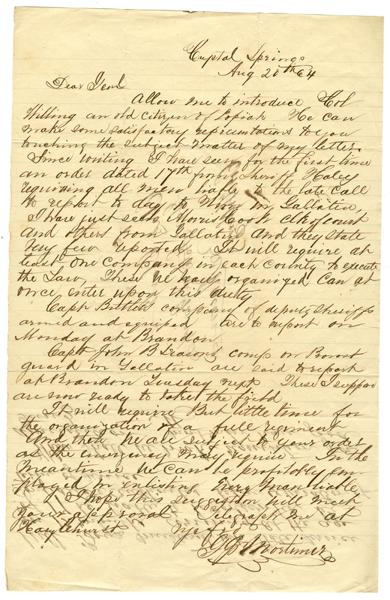 Crystal Springs
Aug 20th 64
Dear Genl
Allow me to introduce Col
Willing an old citizen of Copiah He can
make some satisfactory representations to you
touching the subject matter of my letter.
Since writing I have seen for the first time
an order dated 17th from Sheriff Haley
requiring all men liable to the late Call
to report to day to him in Gallatin.
I have just seen Morris Cook clk of court
and others from Gallatin And they state
very few reported. It will require at
least One company in each County to execute
the Law, These we have organized can at
once enter upon this duty
Capt company of deputy Sheriffs
armed and equiped are to report on
Monday at Brandon
Capt John B comp or
guard in Gallatin are said to report
at Brandon Tuesday next These I suppose
are now ready to take the field
It will require But little time for
the organization of a full regiment
And then we are subject to your order
as the emergency may require In the
meantime we can be profitably em
ployed in enlisting every man liable
I hope this suggestion will meet
your approval please
Hazlehurst
Mortimer